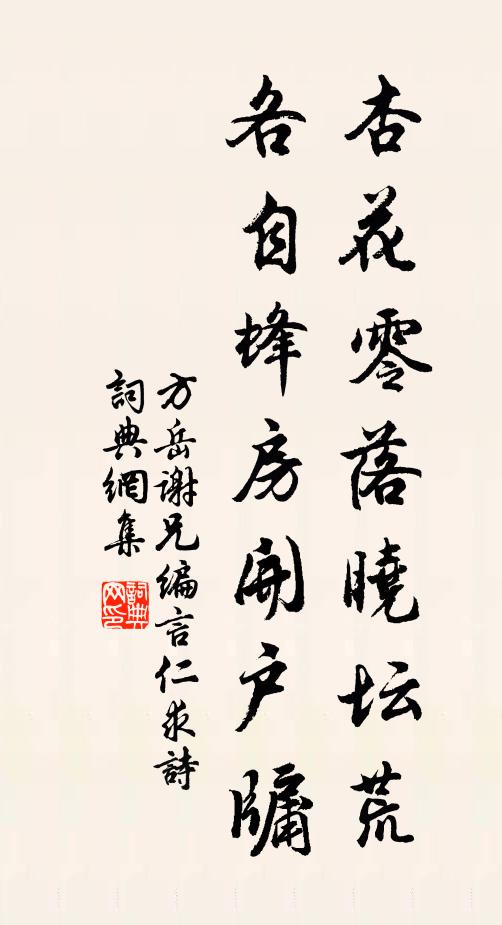 杏花零落曉坛荒
各自蜂房開户牖
方岳谢兄编言仁求詩
詞典網集
詞典网印